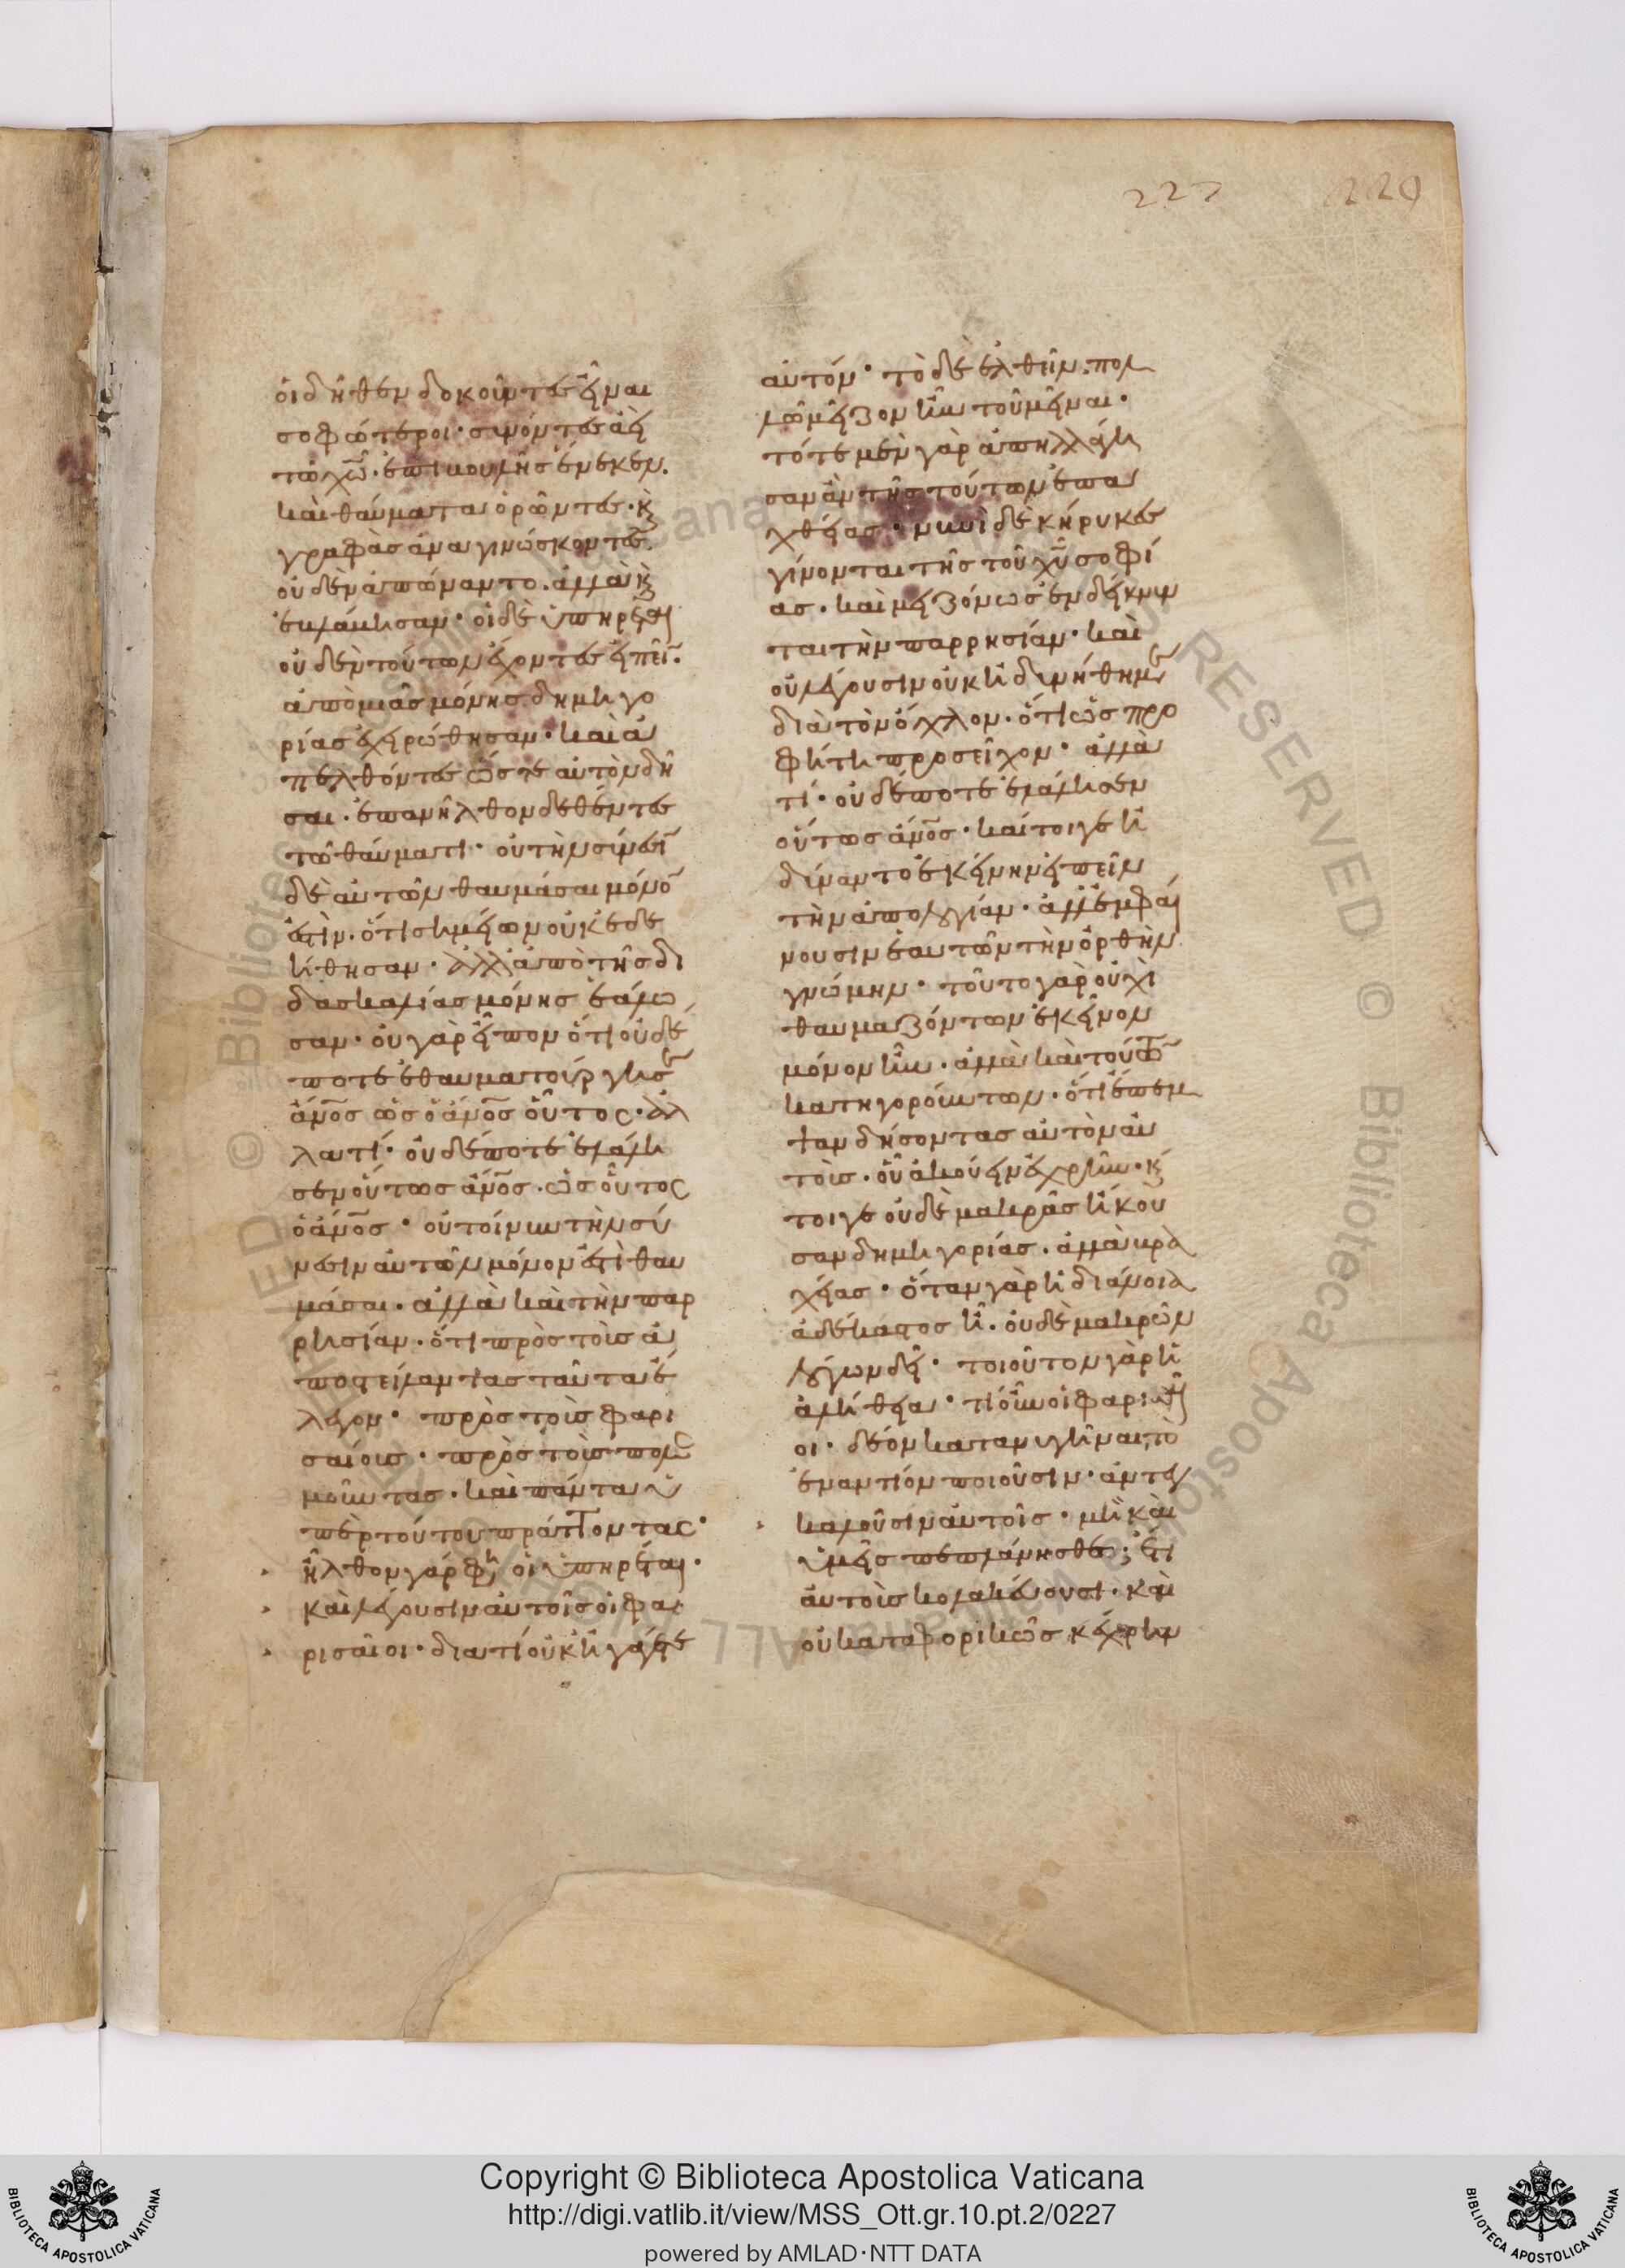 227 229
οἱ δῆθεν δοκοῦντες εἶναι
σοφώτεροι· συνόντες ἀεὶ
τῶ χῶ· ἐπιβουλῆς ἕνεκεν.
καὶ θαύματα ὁρῶντες· κ
γραφὰς ἀναγινώσκοντες.
οὐδὲν ἀπώναντο. ἀλλὰ κ
ἐβλάβησαν· οἱ δὲ ὑπηρέται
οὐδὲν τούτων ἔχοντες εἰπεῖν.
ἀπὸ μιᾶς μόνης δημηγο
ρίας ἐχειρώθησαν· καὶ ἀ
πελθόντες ὥστε αὐτὸν δῆ
σαι. ἐπανῆλθον δεθέντες
τῶ θαύματι· οὐ τὴν σύνεσιν
δὲ αὐτῶν θαυμάσαι μόνον
ἐστιν. ὅτι σημείων οὐκ ἐδε
ήθησαν· ἀλλ ἀπὸ τῆς δι
δασκαλίας μόνης ἑάλω
σαν· οὐ γὰρ εἶπον ὅτι οὐδέ
ποτε ἐθαυματούργησεν
ἄνος ὡς ὁ ἄνος οὗτος· ἀλ
λὰ τί· οὐδέποτε ἐλάλη
σεν οὕτως ἄνος. ὡς οὗτος
ὁ ἄνος· οὐ τοίνυν τὴν σύ
νεσιν αὐτῶν μόνον ἐστὶ θαυ
μάσαι. ἀλλὰ καὶ τὴν παρ
ρησίαν. ὅτι πρὸς τοὺς ἀ
ποστείλαντας ταῦτα ἔ
λεγον· πρὸς τοὺς φαρι
σαίους· πρὸς τοὺς πολε
μοῦντας. καὶ πάντα ὑ
πὲρ τούτου πράττοντας·
ἦλθον γάρ φη οἱ ὑπηρέται·
καὶ λέγουσιν αὐτοῖς οἱ φα
ρισαῖοι· διατί οὐκ ἠγάγετε
αὐτόν· τὸ δὲ ἐλθεῖν. πολ
λῶ μεῖζον ἦν τοῦ μεῖναι·
τότε μὲν γὰρ ἀπηλλάγη
σαν ἂν τῆς τούτων ἐπα
χθείας· νυνὶ δὲ κήρυκες
γίνονται τῆς τοῦ χῦ σοφί
ας. καὶ μειζόνως ἐνδείκνυν
ται τὴν παρρησίαν· καὶ
οὐ λέγουσιν οὐκ ἠδυνήθημεν
διὰ τὸν ὄχλον. ὅτι ὡς προ
φήτη προσεῖχον· ἀλλὰ
τί· οὐδέποτε ἐλάλησεν
οὕτως ἄνος· καίτοιγε ἠ
δύναντο ἐκεῖνην εἰπεῖν
τὴν ἀπολογίαν· ἀλλ ἐμφαί
νουσιν ἑαυτῶν τὴν ὀρθὴν
γνώμην· τοῦτο γὰρ οὐχὶ
θαυμαζόντων ἐκεῖνον
μόνον ἦν. ἀλλὰ καὶ τούτων
κατηγορούντων. ὅτι ἔπεμ
ψαν δήσοντας αὐτὸν αὐ
τοὺς. οὗ ἀκούειν ἐχρῆν. κ
τοιγε οὐδὲ μακρᾶς ἤκου
σαν δημηγορίας. ἀλλὰ βρα
χείας· ὅταν γὰρ ἡ διάνοια
ἀδέκαστος ἦ. οὐδὲ μακρῶν
λόγων δεῖ· τοιοῦτον γὰρ ἡ
ἀλήθεια· τί οὖν οἱ φαρισαῖ
οι· δέον κατανυγῆναι, τὸ
ἐναντίον ποιοῦσιν· ἀντεγ
καλοῦσιν αὐτοῖς· μὴ καὶ
ὑμεῖς πεπλάνησθε; ἔτι
αὐτοὺς κολακεύουσι. καὶ
οὐ καταφορικῶς κέχρην
Copyright © Biblioteca Apostolica Vaticana
http://digi.vatlib.it/view/MSS_Ott.gr.10.pt.2/0227
powered by AMLAD·NTT DATA